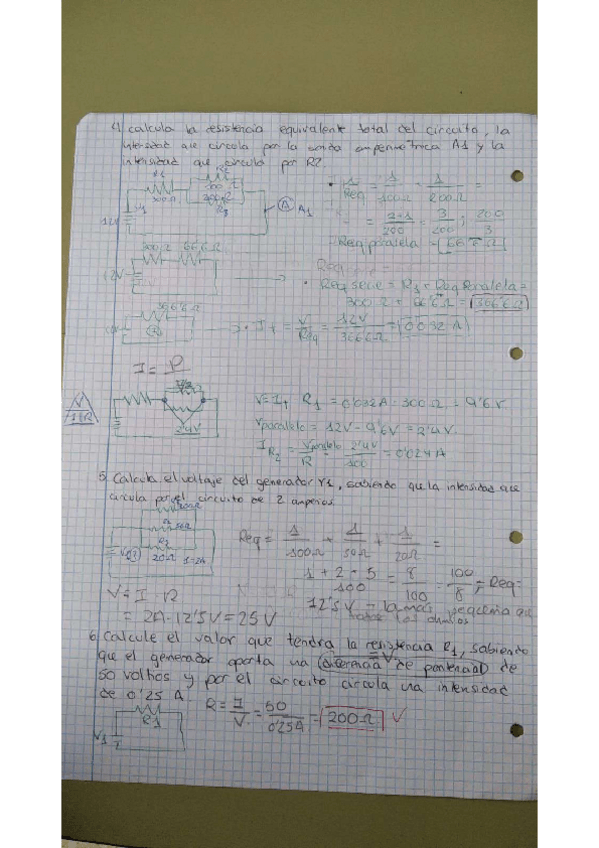 4. calcula la resistencia equivalente total del circuito, la
intensidad que circula por la sonda amperimetrica A1 y la
intensidad que circula por R2.
1/Req = 1/100Ω + 1/200Ω =
= 2+1/200 = 3/200 ; 200/3
Req paralela = 66'6Ω
300Ω 66'6Ω
12V
Req serie = R1 + Req Paralela =
300Ω + 66'6Ω = 366'6Ω
366'6Ω
I = V/Req = 12V/366'6Ω = 0'032A
I = P
V
I·R
2'4V
V = I R1 = 0'032A · 300Ω = 9'6V
Vparalelo = 12V - 9'6V = 2'4V
I R2 = Vparalelo/R = 2'4V/100 = 0'024A
5. Calcula el voltaje del generador V1, sabiendo que la intensidad que
circula por el circuito de 2 amperios.
50Ω
20Ω I=2A
Req = 1/100Ω + 1/50Ω + 1/20Ω =
1+2+5/100 = 8/100 = 100/8 ; Req =
12'5V = la más pequeña que
todos los
V = I · R
= 2A · 12'5V = 25V
6. Calcule el valor que tendra la resistencia R1, sabiendo
que el generador aporta una (diferencia de potencial) de
50 voltios y por el circuito circula una intensidad
de 0'25 A.
R = I/V = 50/0'25A = 200Ω
V1 R1